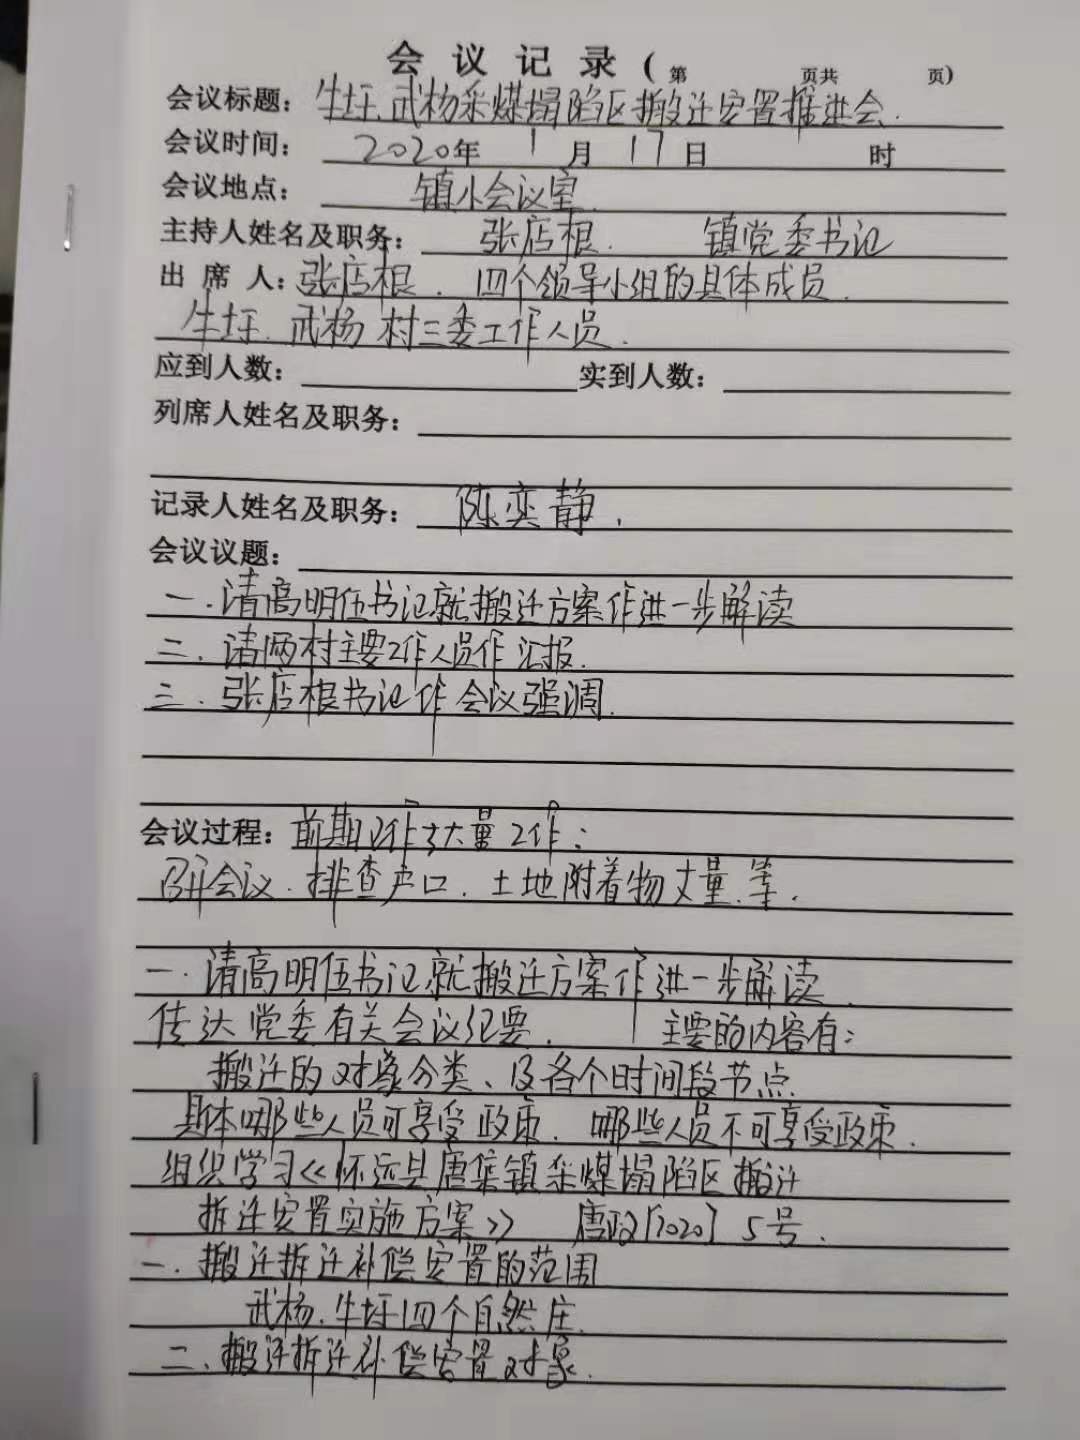 会议记录(第 页共 页)
会议标题：牛圩.武杨采煤塌陷区搬迁安置推进会.
会议时间：2020年 1月 17日 时
会议地点：镇小会议室.
主持人姓名及职务：张店根. 镇党委书记
出席人：张店根. 四个领导小组的具体成员.
牛圩.武杨村三委工作人员.
应到人数： 实到人数：
列席人姓名及职务：
记录人姓名及职务：陈奕静.
会议议题：
一.请高明伍书记就搬迁方案作进一步解读
二.请两村主要工作人员作汇报.
三.张店根书记作会议强调.
会议过程：前期工作大量工作：
召开会议.排查户口.土地附着物丈量.等.
一.请高明伍书记就搬迁方案作进一步解读.
传达党委有关会议纪要. 主要的内容有：
搬迁的对象分类、及各个时间段节点.
具体哪些人员可享受政策.哪些人员不可享受政策.
组织学习《怀远县唐集镇采煤塌陷区搬迁
拆迁安置实施方案》 唐政[2020] 5号.
一.搬迁拆迁补偿安置的范围
武杨.牛圩四个自然庄.
二.搬迁拆迁补偿安置对象.